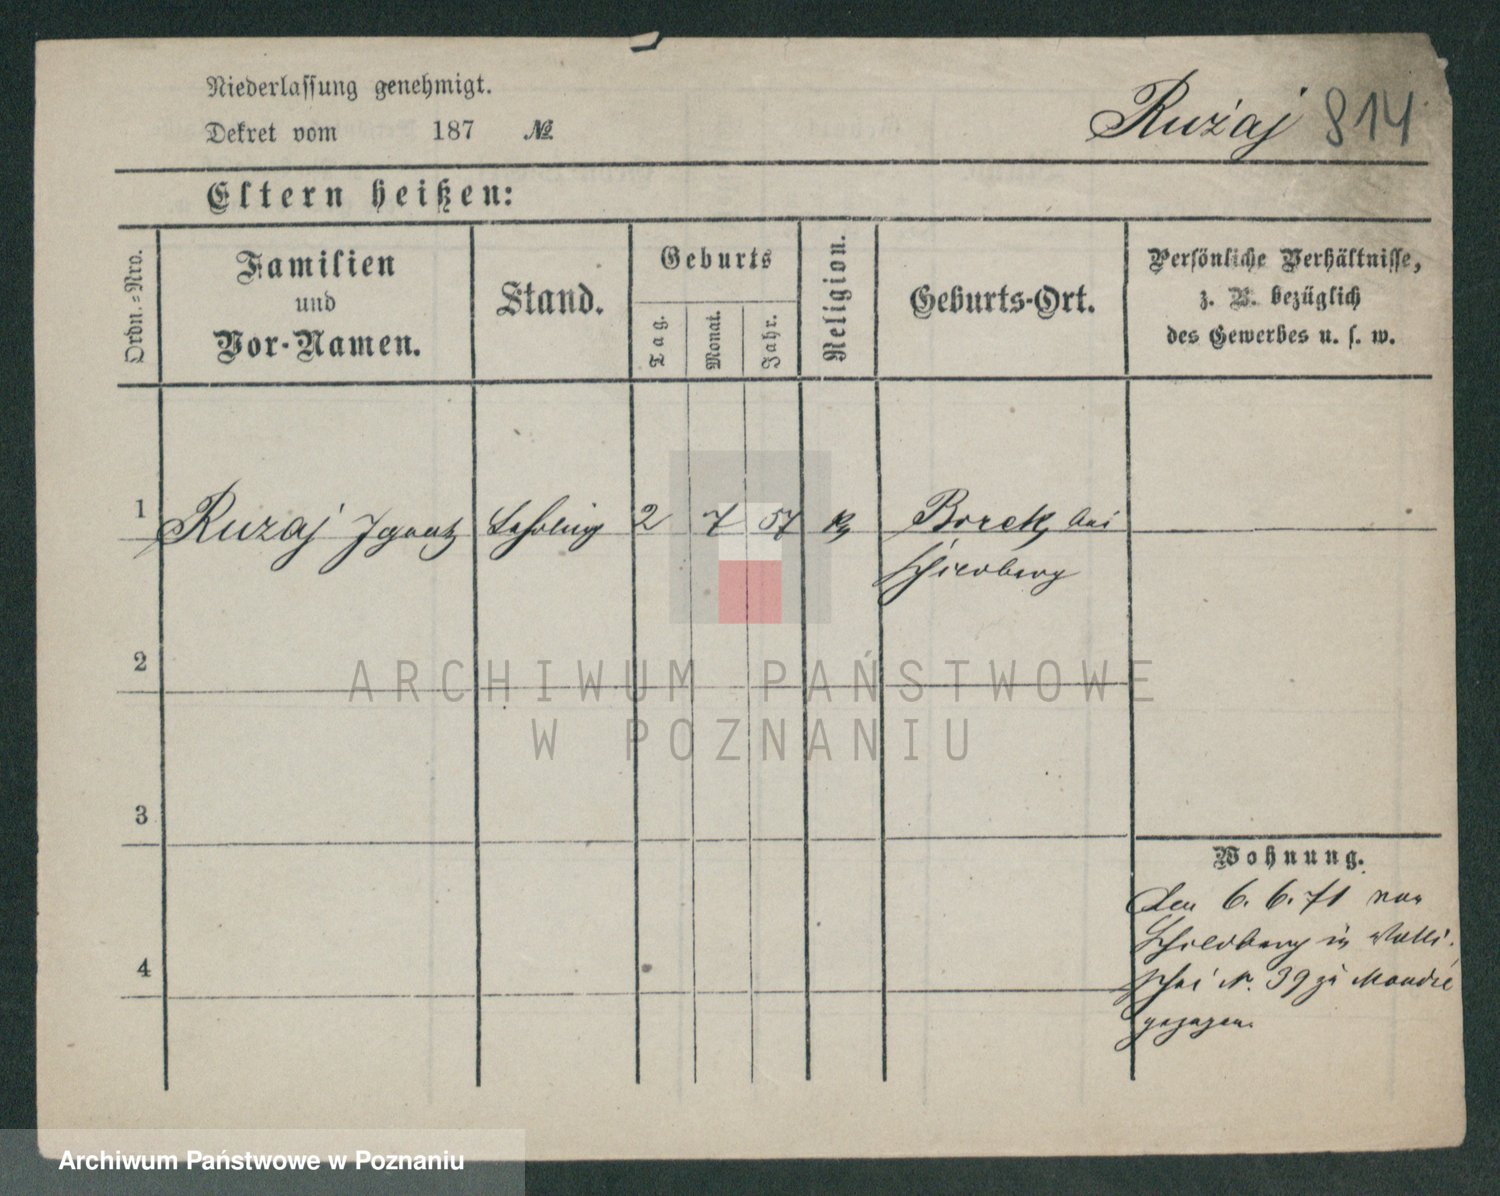 Niederlassung genehmigt.
Dekret vom 187 №
Rużaj 814
Eltern heißen:
Ordn.=Nro.
Familien
und
Vor-Namen.
Stand.
Geburts
Tag.
Monat.
Jahr.
Religion.
Geburts-Ort.
Persönliche Verhältnisse,
z. B. bezüglich
des Gewerbes u. s. w.
1 Ruzaj Ignatz Lehrling 2 7 57 k Borek bei
Schildberg
2
3
4
Wohnung.
Den 6. 6. 71 von
Schildberg in Walli-
schei N. 39 zu
gezogen.
ARCHIWUM PAŃSTWOWE
W POZNANIU
Archiwum Państwowe w Poznaniu